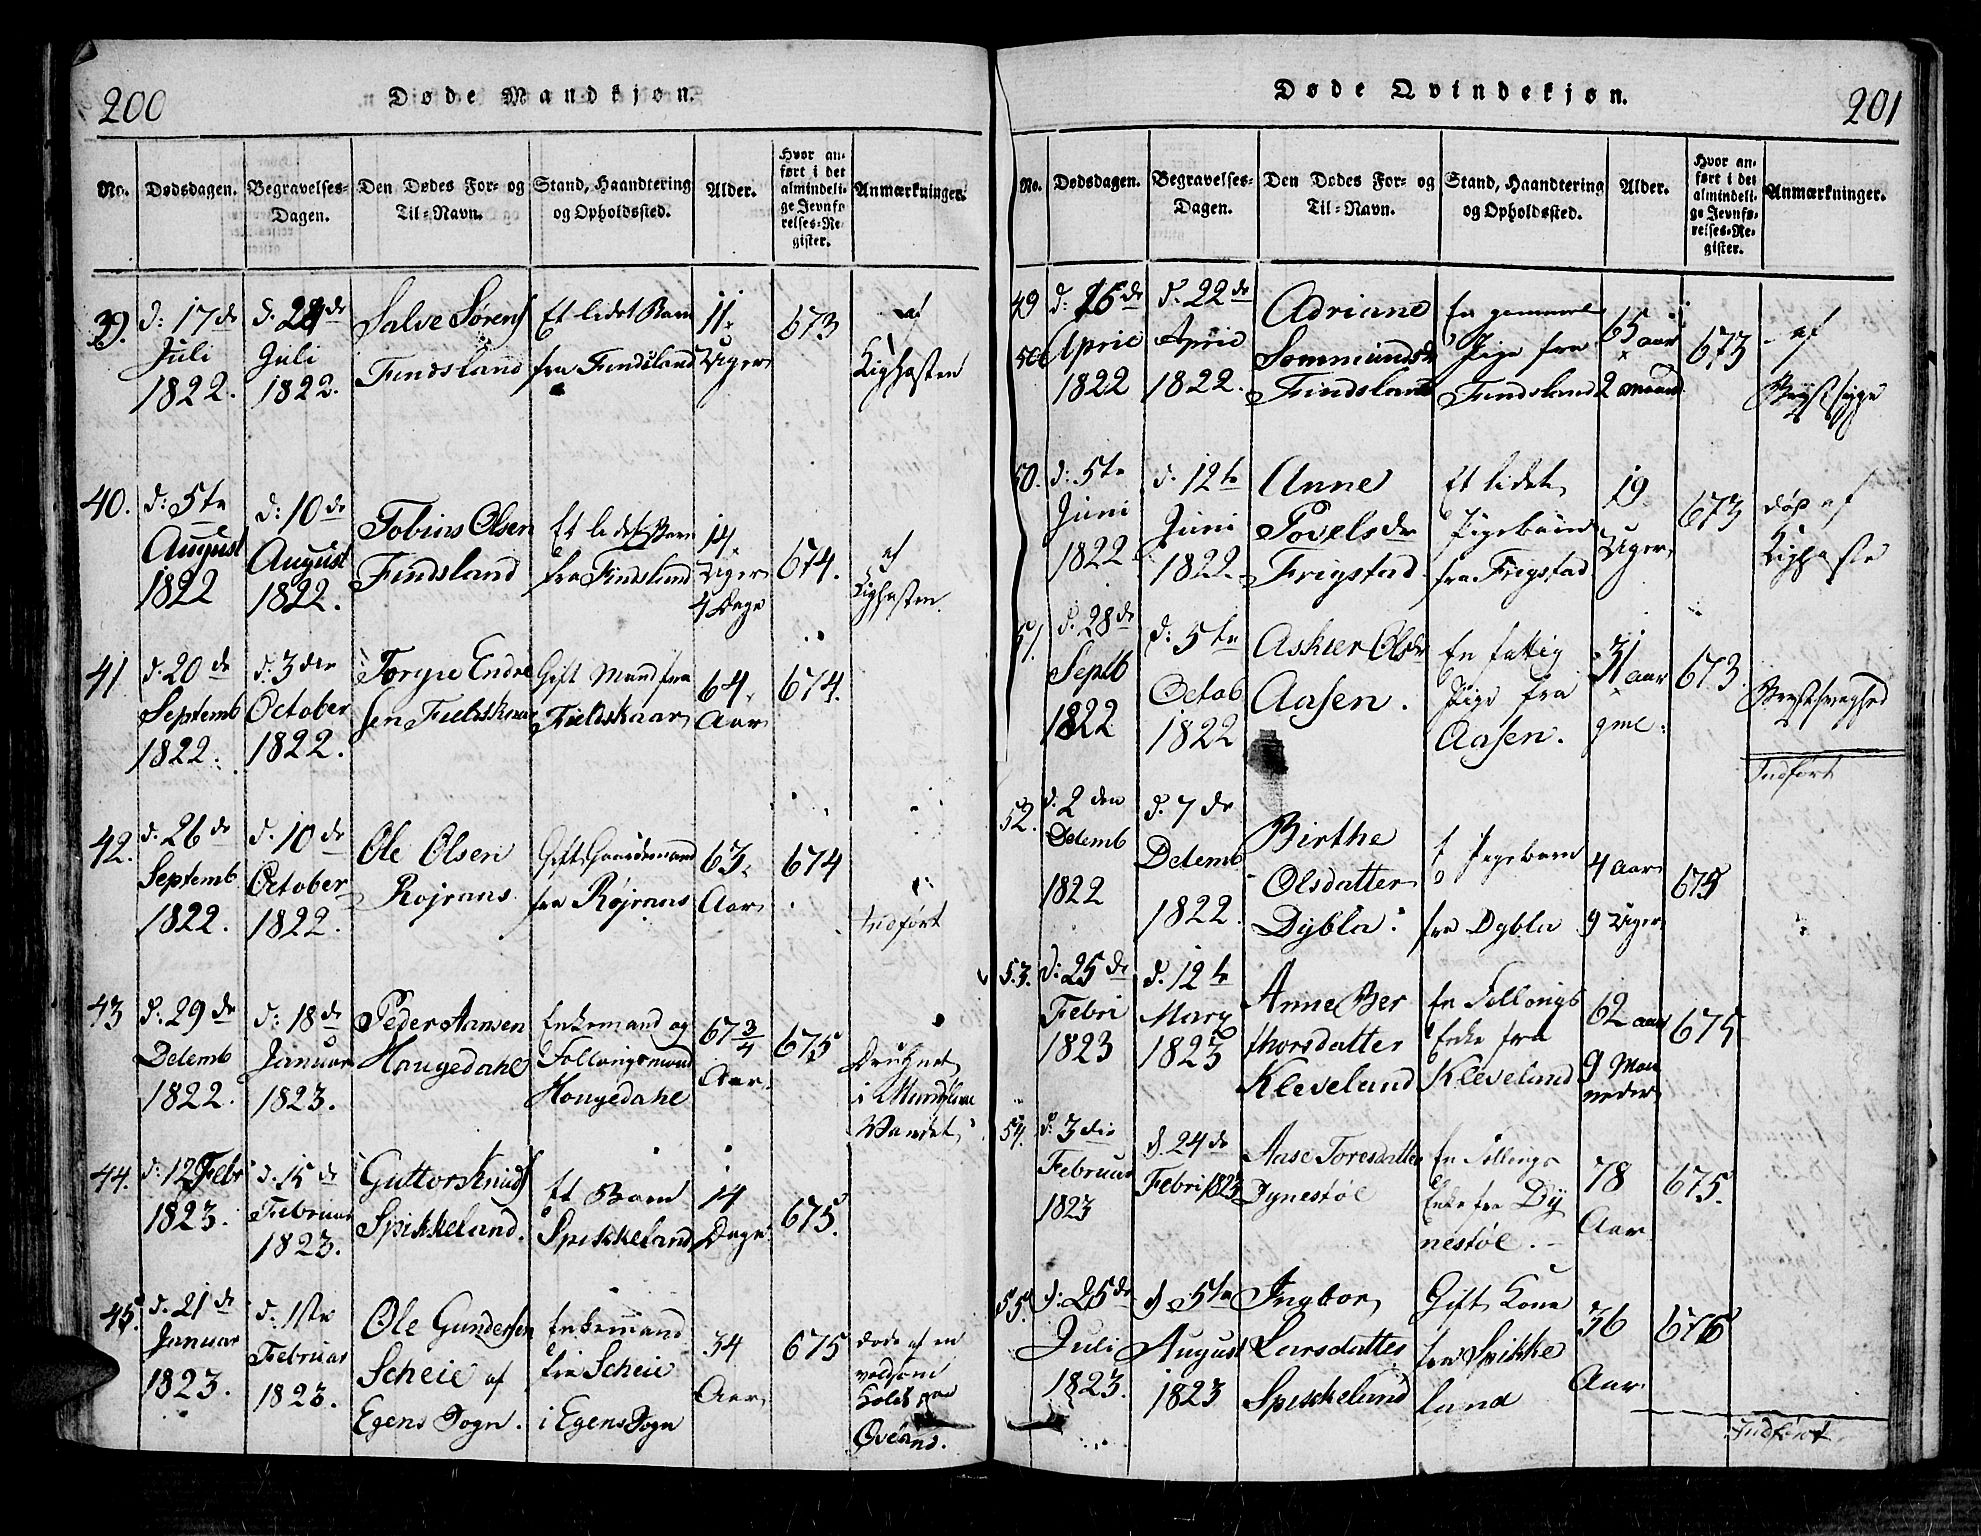 200
Døde Mandkjøn.
No.
Dødsdagen.
Begravelses-
Dagen.
Den Dødes For- og
Til-Navn.
Stand, Haandtering
og Opholdssted.
Alder.
Hvor an-
ført i det
almindeli-
ge Jevnfø-
relses-Re-
gister.
Anmærkninger.
39.
d: 17de
Juli
1822.
Juli
1822.
Salve Sørens
Findsland
Et lidet Barn
fra Findsland
11
Uger
673
af
Kighosten
40.
d: 5te
August
1822
d: 10de
August
1822.
Tobias Olsen
Findsland
Et lidet Barn
fra Findsland
14
Uger
4 Dage
674.
af
Kighosten.
41
d. 20de
Septemb
1822.
d. 3die
October
1822.
Torgie Endre
sen Fieldskaar
Gift Mand fra
Fieldskaar
64
Aar
674.
42.
d. 26de
Septemb
1822.
d. 10de
October
1822.
Ole Olsen
Røjraas
Gift Gaardmand
fra Røjraas
63
Aar
674
Indført
43
d. 29de
Decemb
1822.
d: 18de
Januar
1823.
Peder Aansen
Hougedahl
Enkemand og
Follaugsmand
Hougedahl
67 3/4
Aar
675
Druknet
i
Vandet
44.
d: 12 Febr
1823.
d. 15de
Februar
1823.
Guttorm Knuds
Spikkeland.
Et Barn
Spikkeland
14
Dage
675.
45.
d. 21de
Januar
1823.
d: 1ste
Februar
1823.
Ole Gundersen
Scheie af
Egens Sogn.
Enkemand
fra Scheie
i Egens Sogn
34
Aar
675
døde af en
voldsom
Kolde
201
Døde Qvindekjøn.
No.
Dødsdagen.
Begravelses-
Dagen.
Den Dødes For- og
Til-Navn.
Stand, Haandtering
og Opholdssted.
Alder.
Hvor an-
ført i det
almindeli-
ge Jevnfø-
relses-Re-
gister.
Anmærkninger.
49
April
1822
d. 22de
April
1822.
Adriane
Sommundsdr
Findsland
En gammel
Pige fra
Findsland
65 aar
2 maaned
673
af
Brystsyge
50.
d: 5te
Juni
1822
d. 12te
Juni
1822.
Anne
Povelsdr
Frigstad
Et lidet
Pigebarn
fra Frigstad
19
Uger
673
døp af
Kighoste
51.
d. 28de
Septb
1822
d: 5te
Octob
1822
Askier Olsdr
Aasen.
En fattig
Pige fra
Aasen.
31 aar
gml.
673.
Brystsvaghed
Indført
52.
d. 2den
Decemb
1822
d. 7de
Decemb
1822.
Birthe
Olsdatter
Dybla.
Pigebarn
fra Dybla
4 Aar
9 Uger
675
53.
d: 25de
Febri
1823
d. 12te
Marz
1823
Anne Ber
thorsdatter
Kleveland
En Follaugs
Enke fra
Kleveland
62 aar
9 Maa
neder
675
54.
d. 3die
Februar
1823
d. 24de
Febri 1823
Aase Toresdatter
Dynestøl
En Follaugs
Enke fra Dy
nestøl.
78
Aar
675.
55.
d. 25de
Juli
1823.
d 5te
August
1823
Ingbor
Larsdatter
Spikkeland
Gift Kone
fra Spikke
land
36
Aar
676
Indført